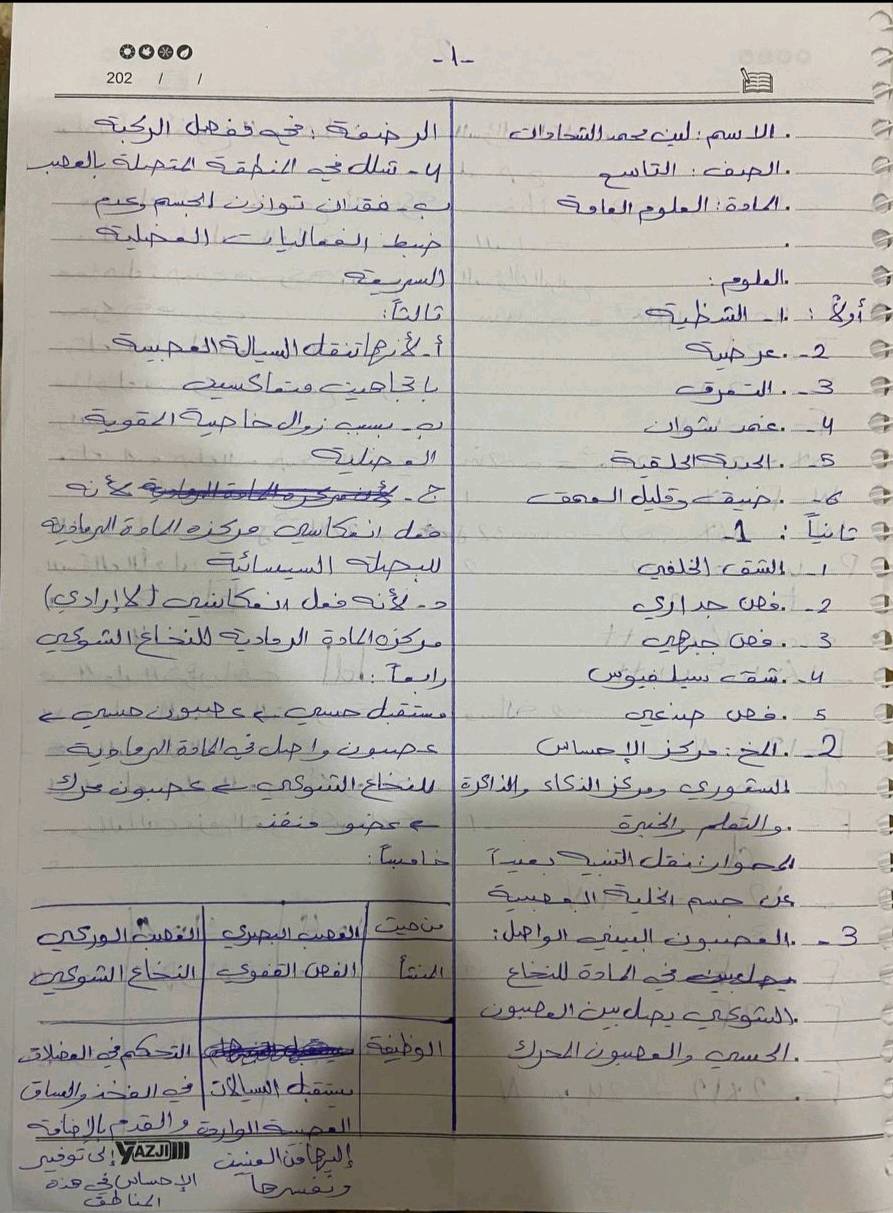 -١-
202 / /
الاسم: لين محمد الشحادات
الصف: التاسع
المادة: العلوم العامة
العلوم:
أولاً: 1- الشظية
2- عرضية
3- التمزق
4-
5- الحدبة الحلقية
6- ضيق وقليل العمق
ثانياً: 1-
1- الشق الخلفي
2- فص جداري
3- فص جبهي
4- شق سيلفيوس
5 فص صدغي
2- المخ: مركز الإحساس
الشعوري ومركز الذكاء والذاكرة
والتعلم والخبرة
المحوار: نقل التنبيه بعيداً
عن جسم الخلية العصبية
3- العصبون البيني الواصل:
في المادة للنخاع
الشوكي يصل بين العصبون
الحسي والعصبون المحرك
الرضفة: في مفصل الركبة
4- شلل في المنطقة المتصلة بالعصب
ب- فقدان توازن الجسم وعدم
ضبط الفعاليات العضلية
السريعة
ثالثاً:
أ- لأنها تنقل السيالة العصبية
باتجاهين متعاكسين
ب- بسبب زوال خاصية المقوية
العضلية
ج- لأنه
فعل انعكاسي مركزه المادة الرمادية
للبصلة السيسائية
د- لأنه فعل انعكاسي (لا إرادي)
مركزه المادة الرمادية للنخاع الشوكي
رابعاً:
مستقبل حسي ← عصبون حسي ←
عصبون واصل في المادة الرمادية
للنخاع الشوكي ← عصبون محرك
← عضو منفذ
خامساً:
من حيث العصب البصري العصب الوركي
المنشأ الفص القفوي النخاع الشوكي
الوظيفة التحكم في العضلات
يستقبل السيالات في الفخذ والساق
العصبية الواردة والقدم بالإضافة
إليها من العينين إلى توفير
وتفسرها الإحساس في هذه
المناطق
YAZJI